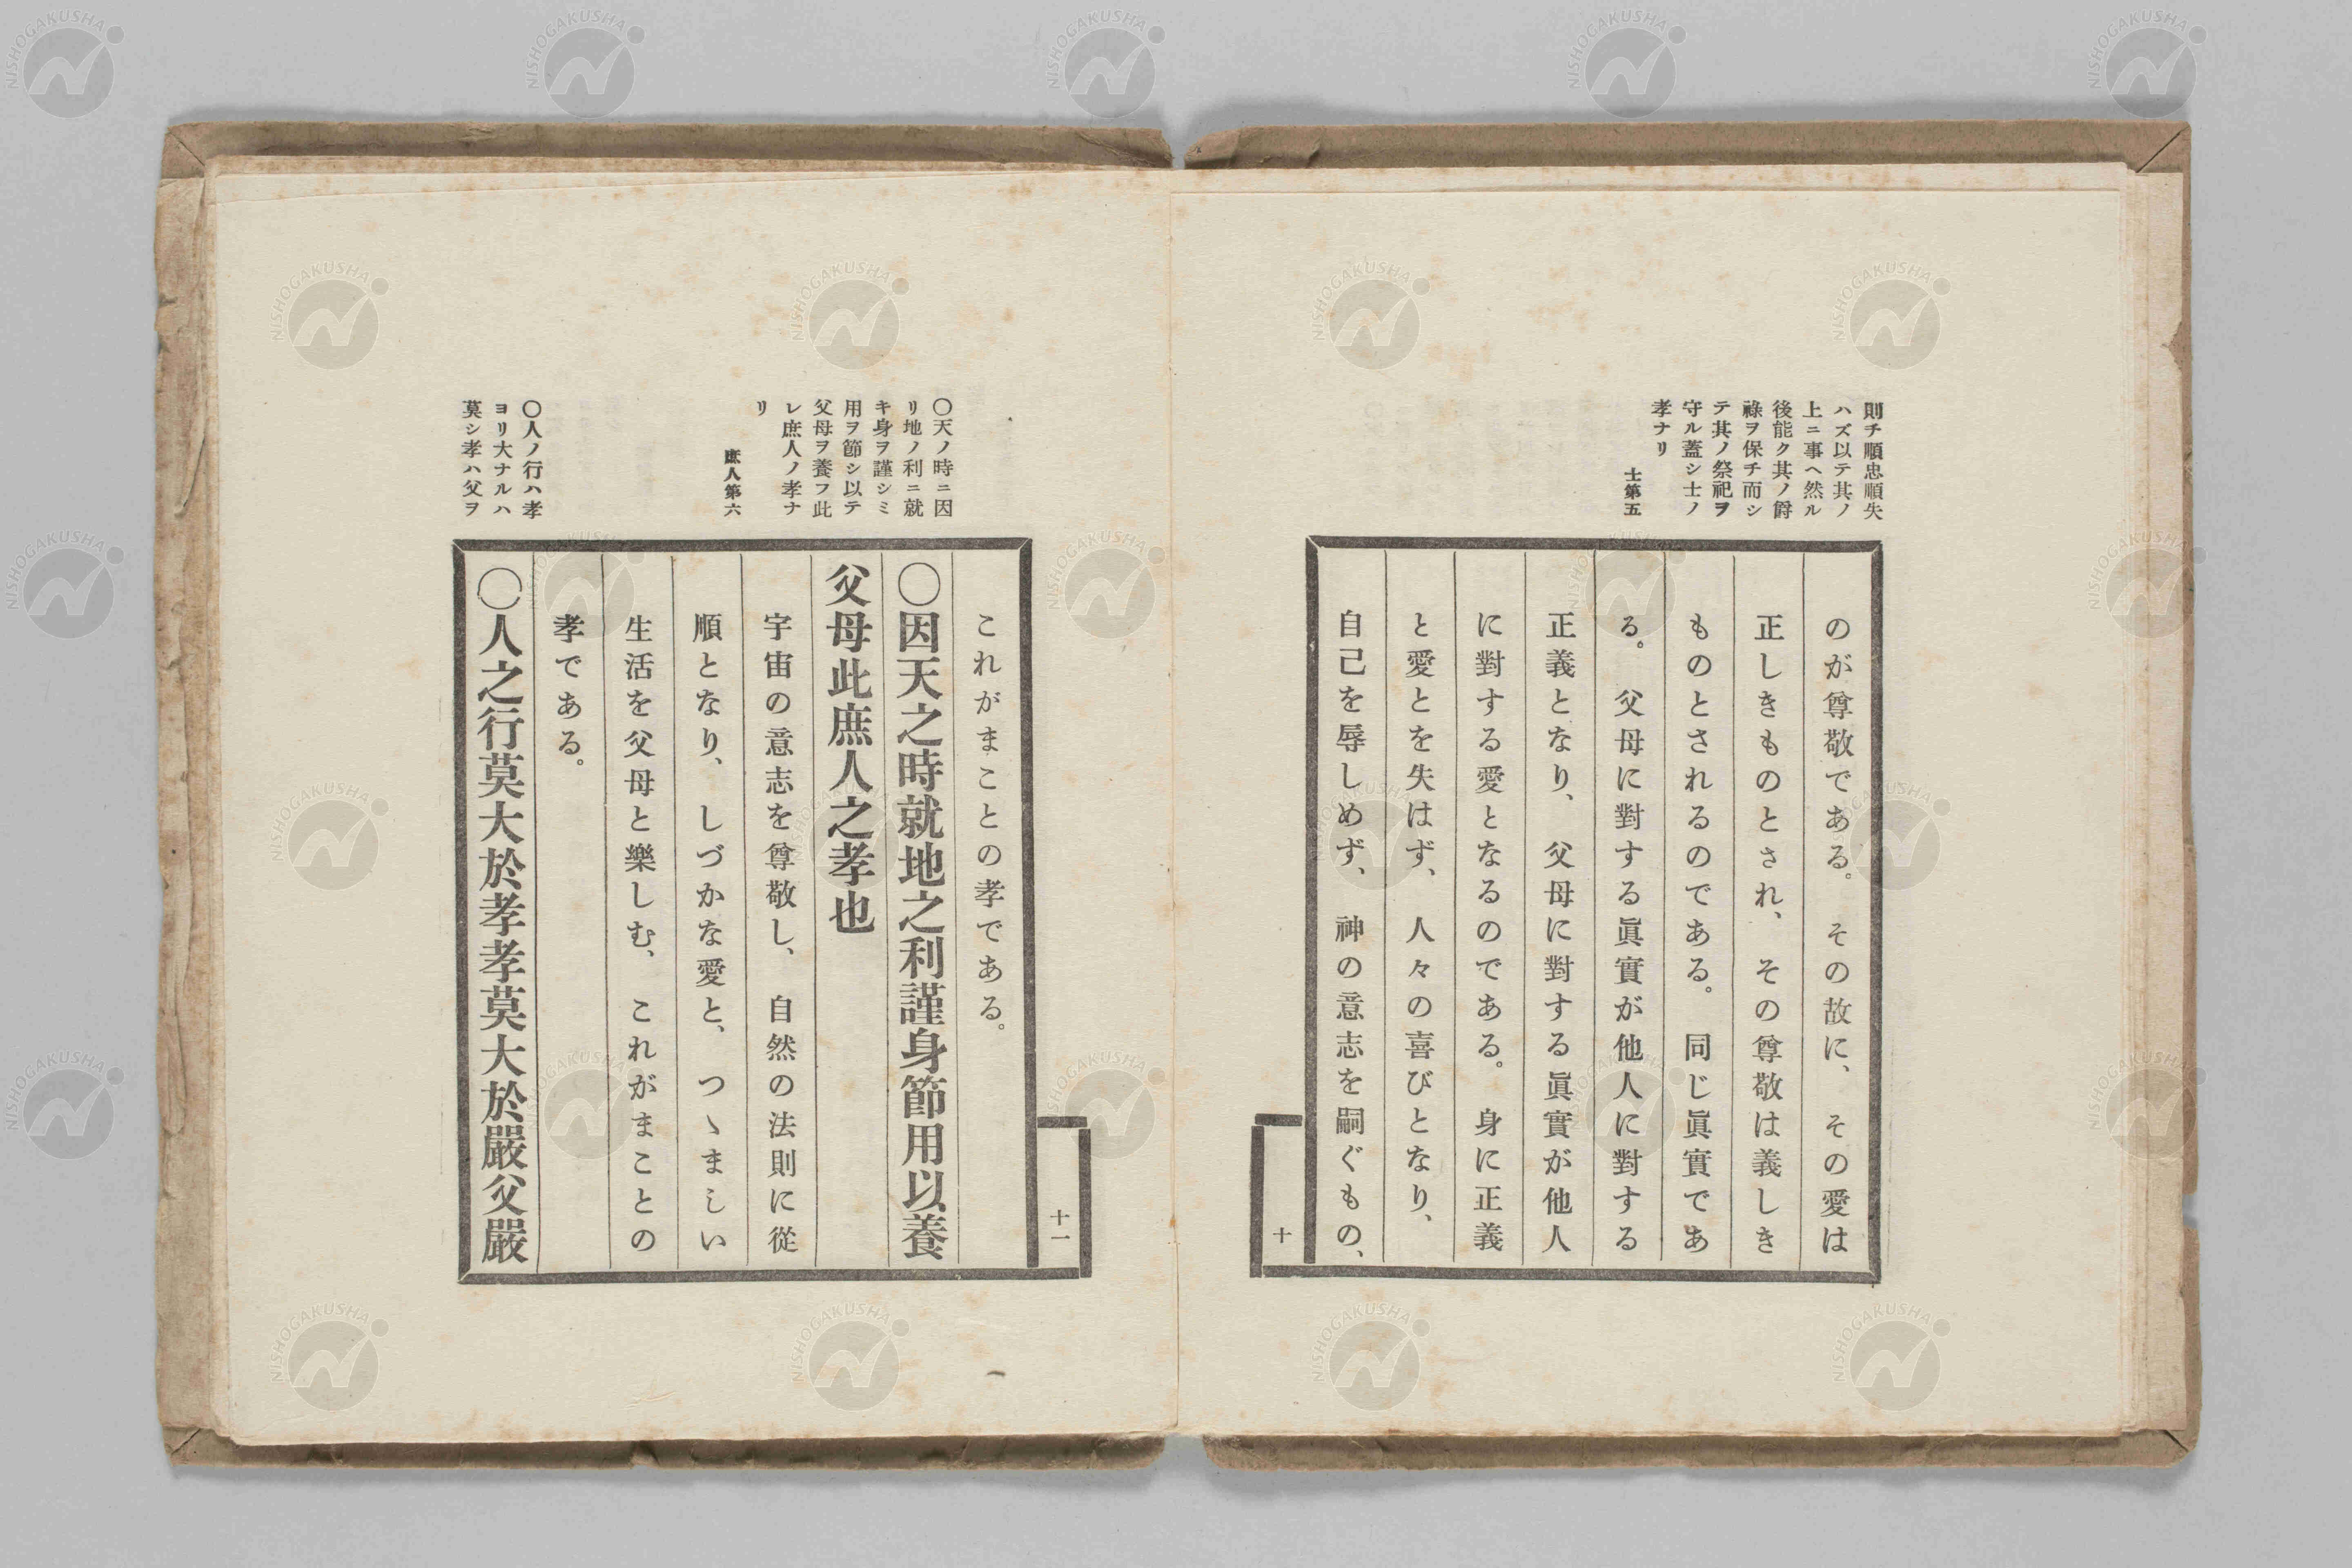 則チ順忠順失
ハズ以テ其ノ
上ニ事ヘ然ル
後能ク其ノ爵
祿ヲ保チ而シ
テ其ノ祭祀ヲ
守ル蓋シ士ノ
孝ナリ
士第五
のが尊敬である。その故に、その愛は
正しきものとされ、その尊敬は義しき
ものとされるのである。同じ眞實であ
る。父母に對する眞實が他人に對する
正義となり、父母に對する眞實が他人
に對する愛となるのである。身に正義
と愛とを失はず、人々の喜びとなり、
自己を辱しめず、神の意志を嗣ぐもの、
十
〇天ノ時ニ因
リ地ノ利ニ就
キ身ヲ謹シミ
用ヲ節シ以テ
父母ヲ養フ此
レ庶人ノ孝ナ
リ
庶人第六
〇人ノ行ハ孝
ヨリ大ナルハ
莫シ孝ハ父ヲ
十一
これがまことの孝である。
〇因天之時就地之利謹身節用以養
父母此庶人之孝也
宇宙の意志を尊敬し、自然の法則に從
順となり、しづかな愛と、つゝましい
生活を父母と樂しむ、これがまことの
孝である。
〇人之行莫大於孝孝莫大於嚴父嚴
NISHOGAKUSHA